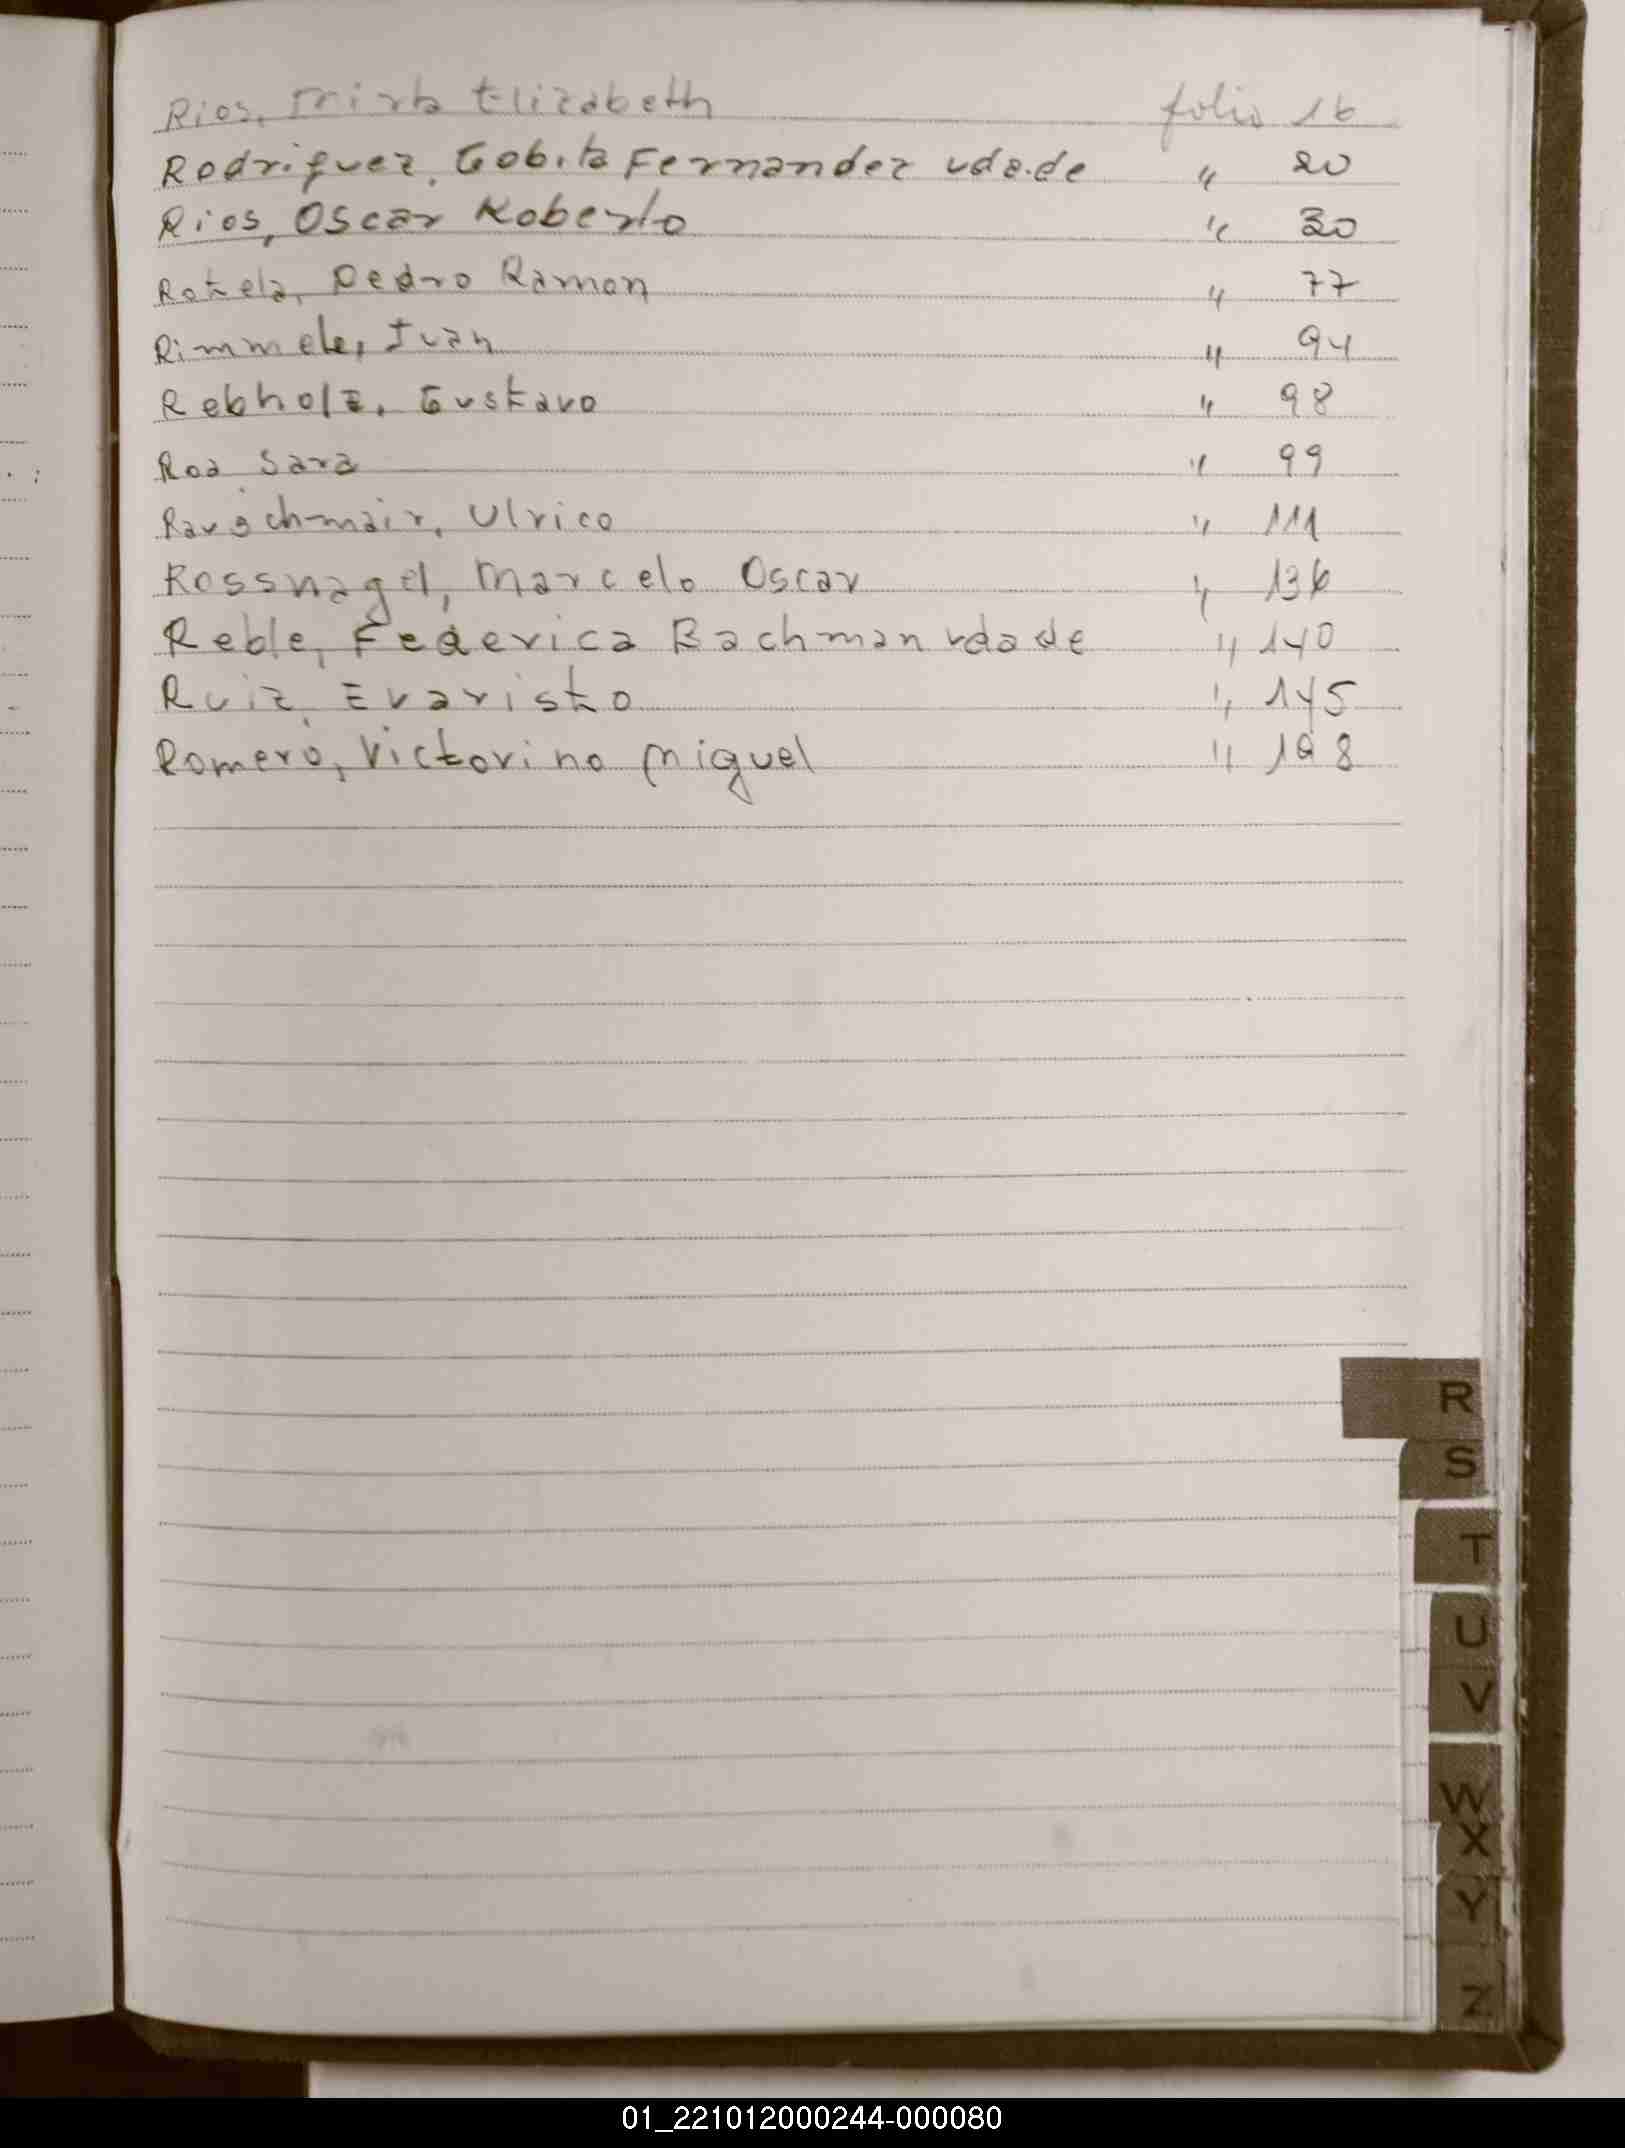 Rios, Mirta Elizabeth folio 16
Rodriguez, Gobita Fernandez vda.de " 20
Rios, Oscar Roberto " 30
Rotela, Pedro Ramon " 77
Rimmele, Ivan " 94
Rebholz, Gustavo " 98
Roa Sara " 99
Rauschmair, Ulrico " 111
Rossnagel, Marcelo Oscar " 136
Reble, Federica Bachman vda de " 140
Ruiz, Evaristo " 145
Romero, Victorino Miguel " 198
R
S
T
U
V
W
X
Y
Z
01_221012000244-000080